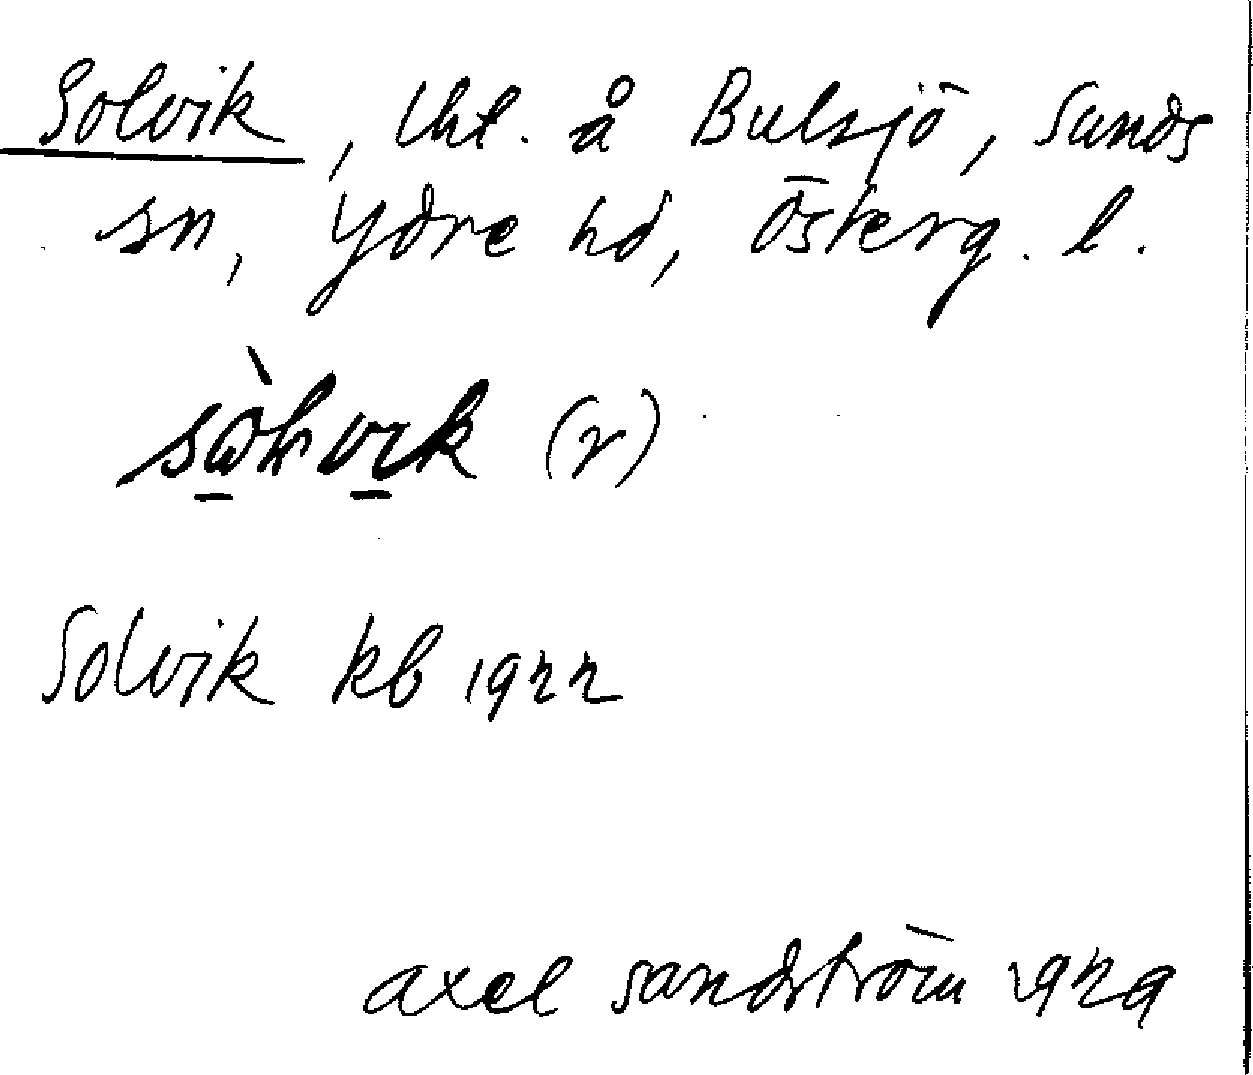 Solvik, lht. å Bulsjö, Sunds
sn, Ydre hd, Österg. l.
(r)
Solvik kb 1922
axel sandström 1929